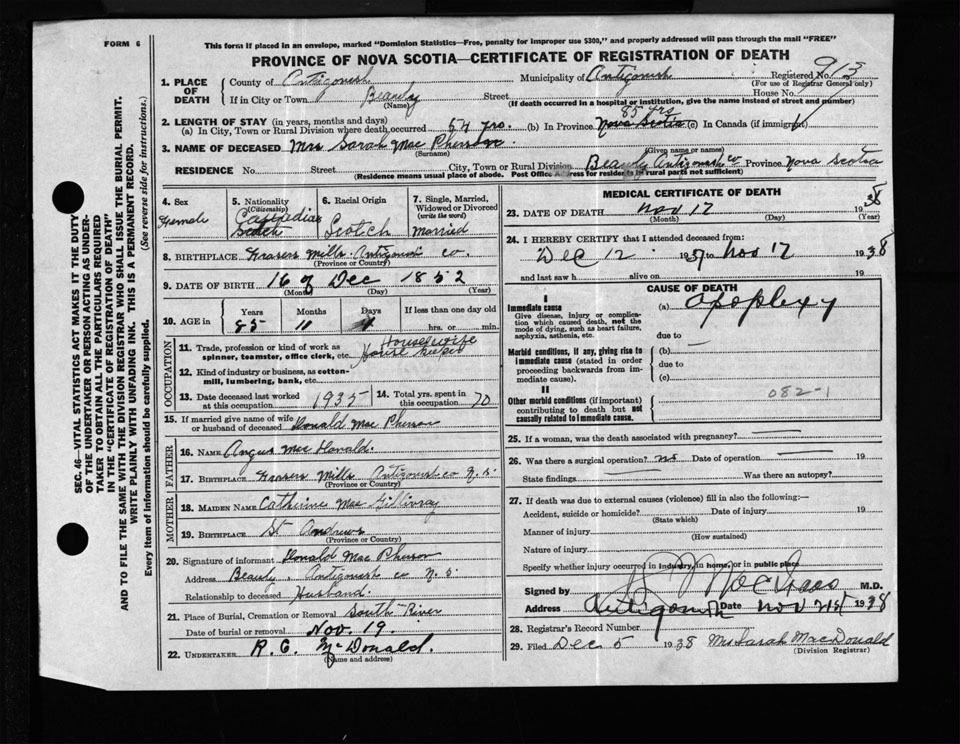 FORM 6
This form if placed in an envelope, marked "Dominion Statistics—Free, penalty for improper use $300," and properly addressed will pass through the mail "FREE"
PROVINCE OF NOVA SCOTIA—CERTIFICATE OF REGISTRATION OF DEATH
Registered No. 913
(For use of Registrar General only)
1. PLACE OF DEATH
County of Antigonish Municipality of Antigonish
If in City or Town Beauly Street House No.
(Name) (If death occurred in a hospital or institution, give the name instead of street and number)
2. LENGTH OF STAY (in years, months and days)
(a) In City, Town or Rural Division where death occurred 54 yrs. (b) In Province 85 yrs Nova Scotia (c) In Canada (if immigrant)
3. NAME OF DECEASED Mrs Sarah Mac Pherson
(Surname) (Given name or names)
RESIDENCE No. Street City, Town or Rural Division Beauly Antigonish co Province Nova Scotia
(Residence means usual place of abode. Post Office Address for residents in rural parts not sufficient)
4. Sex
Female
5. Nationality
(Citizenship)
Canadian
Scotch
6. Racial Origin
Scotch
7. Single, Married, Widowed or Divorced
(write the word)
Married
8. BIRTHPLACE Frasers Mills Antigonish co.
(Province or Country)
9. DATE OF BIRTH 16 of Dec 1852
(Month) (Day) (Year)
10. AGE in
Years Months Days If less than one day old
85 10 hrs. or min.
OCCUPATION
11. Trade, profession or kind of work as spinner, teamster, office clerk, etc. Housewife
House keeper
12. Kind of industry or business, as cotton-mill, lumbering, bank, etc.
13. Date deceased last worked at this occupation 1935 14. Total yrs. spent in this occupation 70
15. If married give name of wife or husband of deceased Donald Mac Pherson
FATHER
16. NAME Angus Mac Donald
17. BIRTHPLACE Frasers Mills Antigonish co N. S.
(Province or Country)
MOTHER
18. MAIDEN NAME Catherine Mac Gillivray
19. BIRTHPLACE St Andrews
(Province or Country)
20. Signature of informant Donald Mac Pherson
Address Beauly. Antigonish co N. S.
Relationship to deceased Husband.
21. Place of Burial, Cremation or Removal South River
Date of burial or removal Nov. 19.
22. UNDERTAKER R. C. McDonald.
(Name and address)
MEDICAL CERTIFICATE OF DEATH
23. DATE OF DEATH Nov 17 1938
(Month) (Day) (Year)
24. I HEREBY CERTIFY that I attended deceased from:
Dec 12 1937 to Nov 17 1938
and last saw h alive on 19
CAUSE OF DEATH
I
Immediate cause
Give disease, injury or complication which caused death, not the mode of dying, such as heart failure, asphyxia, asthenia, etc.
(a) Apoplexy
due to
Morbid conditions, if any, giving rise to immediate cause (stated in order proceeding backwards from immediate cause).
(b)
due to
(c)
II
Other morbid conditions (if important) contributing to death but not causally related to immediate cause.
082-1
25. If a woman, was the death associated with pregnancy?
26. Was there a surgical operation? no Date of operation 19
State findings Was there an autopsy?
27. If death was due to external causes (violence) fill in also the following:—
Accident, suicide or homicide? Date of injury 19
(State which)
Manner of injury
(How sustained)
Nature of injury
Specify whether injury occurred in industry, in home, or in public place
Signed by M.D.
Address Antigonish Date Nov 21st 1938
28. Registrar's Record Number
29. Filed Dec 5 1938 Mrs Sarah MacDonald
(Division Registrar)
SEC. 46—VITAL STATISTICS ACT MAKES IT THE DUTY
OF THE UNDERTAKER OR PERSON ACTING AS UNDER-
TAKER TO OBTAIN ALL THE PARTICULARS REQUIRED
IN THE "CERTIFICATE OF REGISTRATION OF DEATH"
AND TO FILE THE SAME WITH THE DIVISION REGISTRAR WHO SHALL ISSUE THE BURIAL PERMIT.
WRITE PLAINLY WITH UNFADING INK. THIS IS A PERMANENT RECORD.
Every item of information should be carefully supplied. (See reverse side for instructions.)